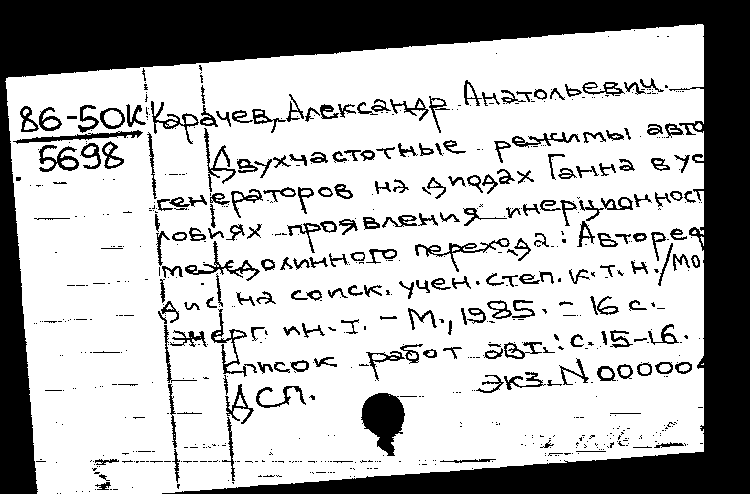 86-50К Карачев, Александр Анатольевич.
5698
Двухчастотные режимы авто
генераторов на диодах Ганна в ус
ловиях проявления инерционност
междолинного перехода: Автореф
дис. на соиск. учен. степ. к.т.н./Мо
энерг. ин-т. - М., 1985. - 16 с.
Список работ авт.: с. 15-16.
ДСП. экз. N 000004